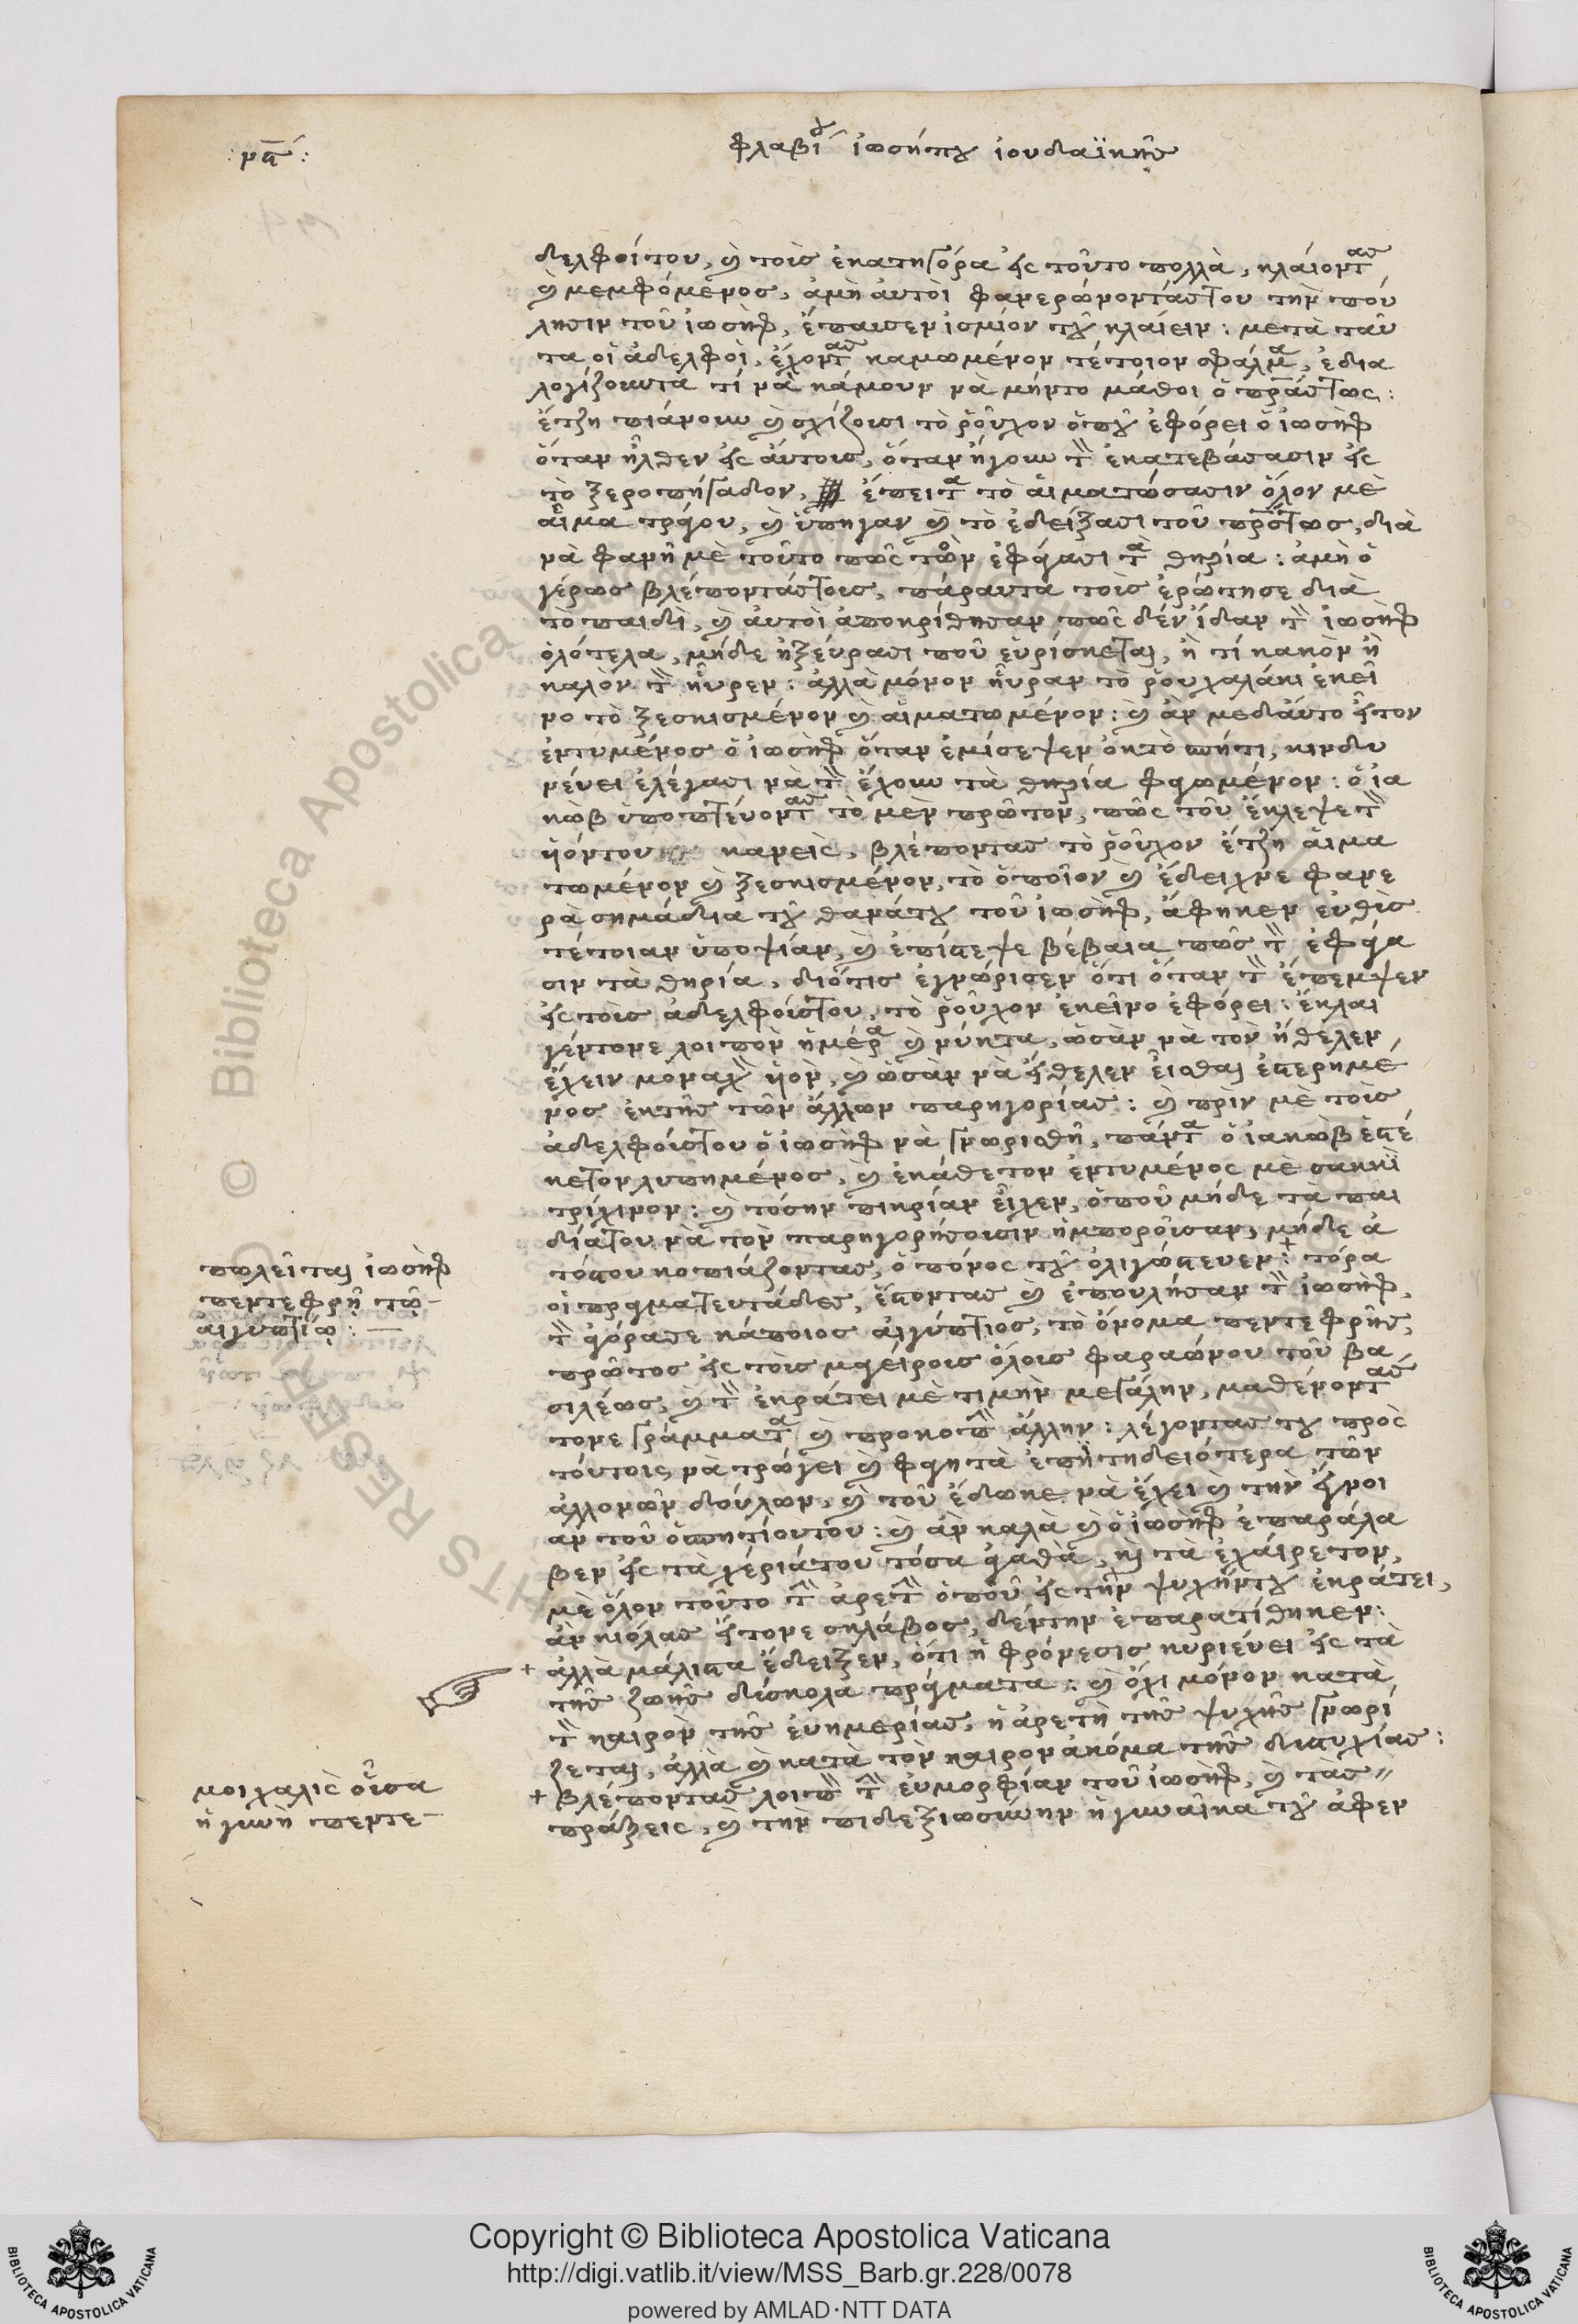 :να:
φλαβίου ἰωσήπου ἰουδαϊκῆς
δελφοί του, καὶ τοὺς ἐκατηγόρα εἰς τοῦτο πολλὰ, κλαίοντας
καὶ μεμφόμενος, ἀμὴ ἀυτοὶ φανερώνοντάςτου τὴν πού
λησιν τοῦ ἰωσὴφ, ἔπαυσεν τοῦ κλαίειν: μετὰ ταῦ
τα οἱ ἀδελφοὶ, ἔχοντας καμωμένον τέτοιον σφάλμα, ἐδια
λογίζουντα τί νὰ κάμουν νὰ μήντο μάθοι ὁ
ἔτζη πιάνουν καὶ σχίζουσι τὸ ῥοῦχον ὁποῦ ἐφόρει ὁ ἰωσὴφ
ὅταν ἦλθεν εἰς ἀυτους, ὅταν ἤγουν τὸν ἐκατεβάσασιν εἰς
τὸ ξεροπήγαδον, ἔπειτα τὸ αἱματώσασιν ὅλον μὲ
αἷμα τράγου, καὶ ὑπηγαν καὶ τὸ ἐδείξασι τοῦ διὰ
νὰ φανῆ μὲ τοῦτο πῶς τὸν ἐφάγασι τὰ θηρία: ἀμὴ ὁ
γέρως βλέποντάςτους, πάραυτα τοὺς ἐρώτησε διὰ
τὸ παιδὶ, καὶ ἀυτοὶ ἀποκρίθησαν πῶς δὲν ἴδαν τὸν ἰωσὴφ
ὁλότελα, μήδε ἠξέυρασι ποῦ ἐυρίσκεται, ἢ τί κακὸν ἢ
καλὸν τὸν ηὗρεν: ἀλλὰ μόνον ηὗραν τὸ ῥουχαλάκι ἐκεῖ
νο τὸ ξεσκισμένον καὶ αἱματωμένον: καὶ ἂν μεδάυτο ἦτον
ἐντυμένος ὁ ἰωσὴφ ὅταν ἐμίσεψεν ὀκτὸ σπήτι, κινδυ
νέυει ἐλέγασι νὰ τὸν ἔχουν τὰ θηρία φαγωμένον: ὁ ἰα
κὼβ ὑποπτέυοντας τὸ μὲν πρῶτον, πῶς τοῦ ἔκλεψε τὸν
ὑιόντου κανεὶς, βλέποντας τὸ ῥοῦχον ἔτζη αἱμα
τωμένον καὶ ξεσκισμένον, τὸ ὁποῖον καὶ ἔδειχνε φανε
ρὰ σημάδια τοῦ θανάτου τοῦ ἰωσὴφ, ἄφηκεν ἐυθὺς
τέτοιαν ὑποψίαν, καὶ ἐπίστεψε βέβαια πῶς τὸν ἐφάγα
σιν τὰ θηρία, διότις ἐγνώρισεν ὅτι ὅταν τὸν ἔπεμψεν
εἰς τοὺς ἀδελφούςτου, τὸ ῥοῦχον ἐκεῖνο ἐφόρει: ἔκλαι
γέντονε λοιπὸν ἡμέρα καὶ νύκτα, ὡσὰν νὰ τὸν ἤθελεν
ἔχειν μοναχὸν ὑιὸν, καὶ ὡσὰν νὰ ἤθελεν εἶσθαι ἐστερημέ
νος ἐκτῆς τῶν ἄλλων παρηγορίας: καὶ πρὶν μὲ τοὺς
ἀδελφούςτου ὁ ἰωσὴφ νὰ γνωρισθῆ, πάντα ὁ ἰακὼβ ἐστέ
κετον λυπημένος, καὶ ἐκάθετον ἐντυμένος μὲ σακκὶ
τρίχινον: καὶ τόσην πικρίαν εἶχεν, ὁποῦ μήδε τὰ παι
δίατου νὰ τὸν παρηγορήσουσιν ἠμποροῦσαν, μήδε ἀ
τόςτου κοπιάζοντας, ὁ πόνος τοῦ ὀλιγώστευεν: + τόρα
οἱ πραγματευτάδες, ἔστοντας καὶ ἐπουλήσαν τὸν ἰωσὴφ,
τὸν ἀγόρασε κάποιος ἀιγύπτιος, τὸ ὄνομα πεντεφρῆς,
πρῶτος εἰς τοὺς μαγείρους ὅλους φαραώνου τοῦ βα
σιλέως, καὶ τὸν ἐκράτει μὲ τιμὴν μεγάλην, μαθένοντας
τονε γράμματα καὶ προκοπὴν ἄλλην: λέγοντας του πρὸς
τούτοις νὰ τρώγει καὶ φαγητὰ ἐπητηδειότερα τῶν
ἀλλονῶν δούλων, καὶ τοῦ ἔδωκε νὰ ἔχει καὶ τὴν ἔγνοι
αν τοῦ ὁσπητίουτου: καὶ ἂν καλὰ καὶ ὁ ἰωσὴφ ἐπαράλα
βεν εἰς τὰ χέριάτου τόσα ἀγαθὰ, καὶ τὰ ἐχαίρετον,
μὲ ὅλον τοῦτο τὴν ἀρετὴν ὁποῦ εἰς τὴν ψυχήντου ἐκράτει,
ἂν κιόλας ἤτονε σκλάβος, δέντην ἐπαρατίθηκεν:
+ ἀλλὰ μάλιστα ἔδειξεν, ὅτι ἡ φρόνεσις κυριέυει εἰς τὰ
τῆς ζωῆς δύσκολα πράγματα: καὶ ὄχι μόνον κατὰ
τὸν καιρὸν τῆς ἐυημερίας, ἡ ἀρετὴ τῆς ψυχῆς γνωρί
ζεται, ἀλλὰ καὶ κατὰ τὸν καιρὸν ἀκόμα τῆς δυστυχίας:
+ βλέποντας λοιπὸν τὴν ἐυμορφίαν τοῦ ἰωσὴφ, καὶ τὰς
πράξεις, καὶ τὴν πιδεξιωσύνην ἡ γυναῖκα τοῦ ἀφεν
πωλεῖται ἰωσὴφ
πεντεφρῆ τῷ
ἀιγυπτίῳ:
μοιχαλὶς οὖσα
ἡ γυνὴ πεντε-
Copyright © Biblioteca Apostolica Vaticana
http://digi.vatlib.it/view/MSS_Barb.gr.228/0078
powered by AMLAD·NTT DATA